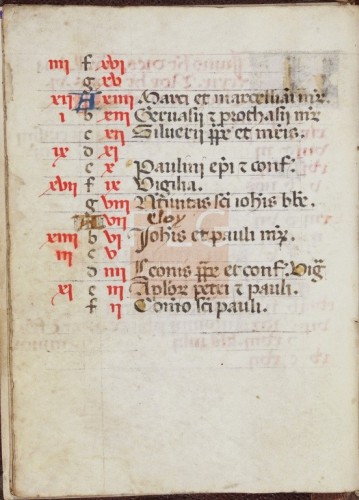 iiii f xvi
g xv
xii A xiiii Marci et marcelliani mr̃.
i b xiii Gervasii ⁊ prothasii mr̃
c xii Silverii pp̃e et mr̃is.
ix d xi
e x Paulini ep̃i ⁊ conf.
xvii f ix Vigilia.
g viii Natiuitas sc̃i ioh̃is bt̃e.
A vii eloy
xiiii b vi Ioh̃is et pauli mr̃.
iii c v
d iiii Leonis pp̃e et conf. Vig̃
xi e iii Ap̃lor̃ petri ⁊ pauli.
f ii Com̃o sc̃i pauli.